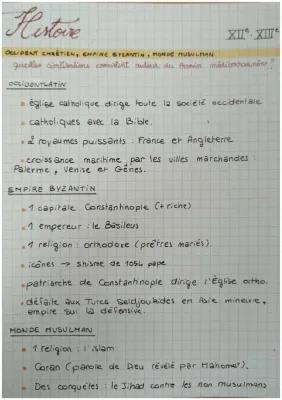 Histoire
XIIe. XIIIe
OCCIDENT CHRÉTIEN, EMPIRE BYZANTIN, MONDE MUSULMAN
quelles civilisations coexistent autour du bassin méditerranéen ?
OCCIDENT LATIN
église catholique dirige toute la société occidentale
catholiques avec la Bible.
2 royaumes puissants : France et Angleterre
croissance maritime par les villes marchandes :
Palerme, Venise et Gênes.
EMPIRE BYZANTIN
1 capitale Constantinople (+ riche)
1 empereur : le Basileus
1 religion : orthodoxe (prêtres mariés).
icônes → shisme de 1054 pape
patriarche de Constantinople dirige l'Église ortho.
défaite aux Turcs Seldjoukides en Asie mineure,
empire sur la défensive.
MONDE MUSULMAN
1 religion : l'islam
Coran (parole de Dieu révélé par Mahomet).
Des conquêtes : le Jihad contre les non musulmans